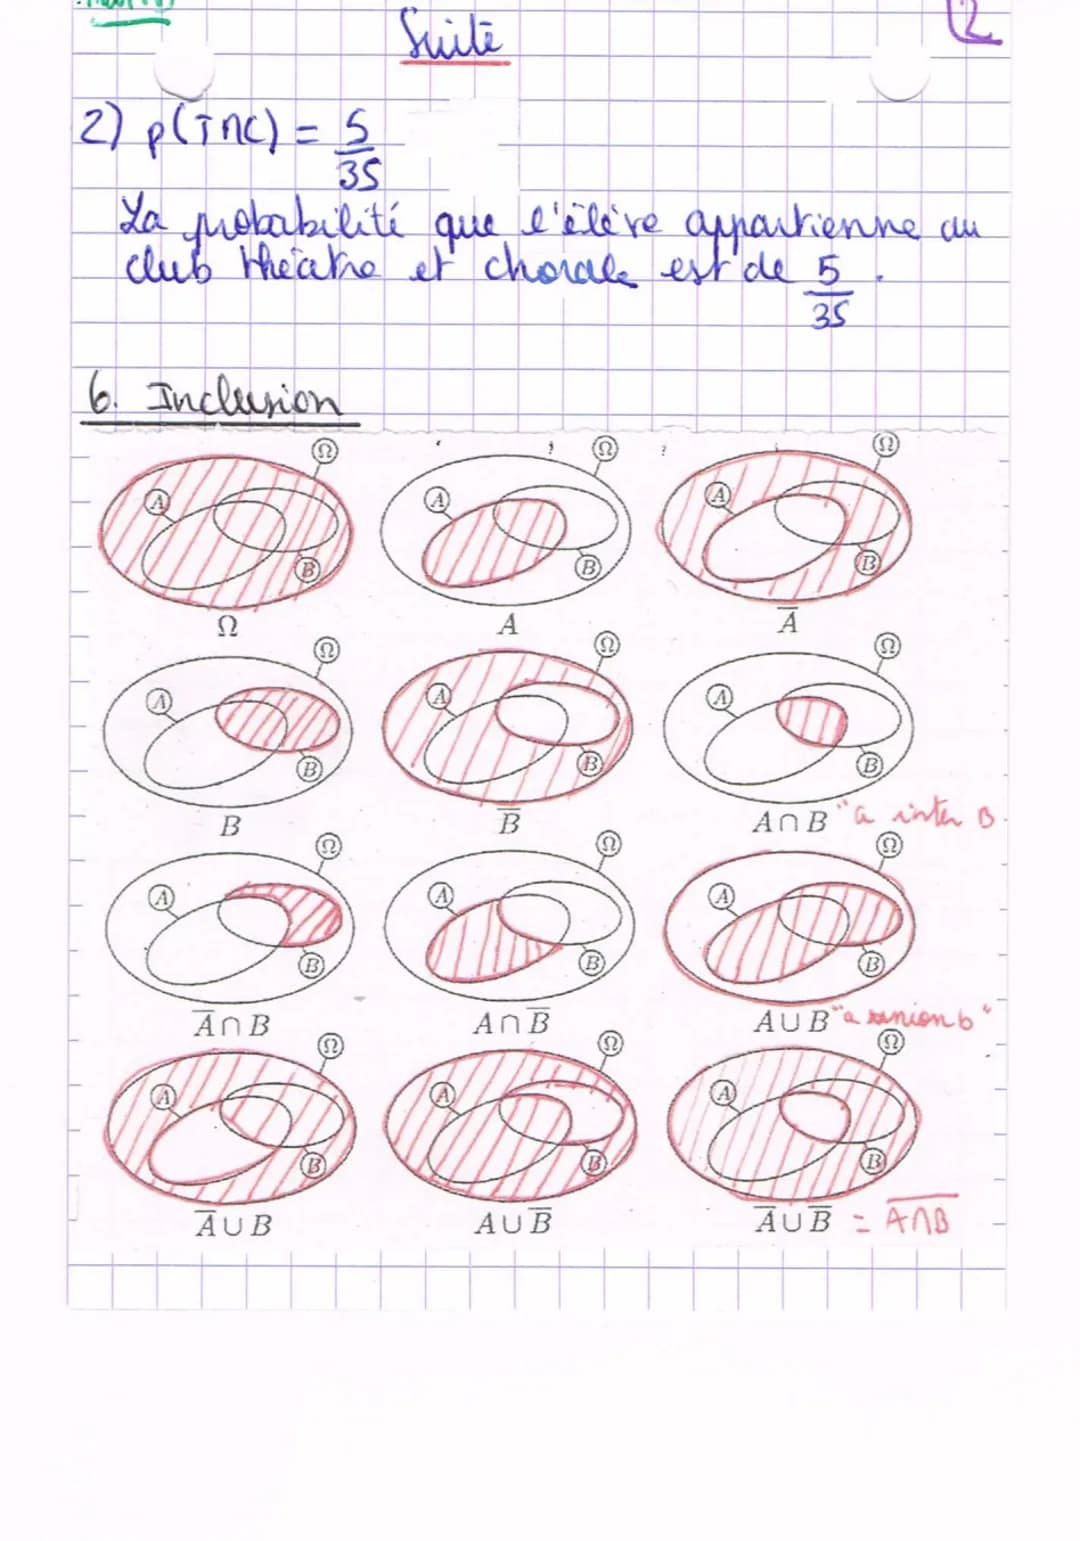 Suite
2
2) p(T∩C) = 5/35
La probabilité que l'élève appartienne au
club théatre et chorale est de 5/35.
6. Inclusion
Ω Ω Ω
A A A
B B B
Ω A A̅
Ω Ω Ω
A A A
B B B
B B̅ A∩B "a inter B
Ω Ω Ω
A A A
B B B
A̅∩B A∩B̅ A∪B "a union b"
Ω Ω Ω
A A A
B B B
A̅∪B A∪B̅ A̅∪B̅ = A̅∩̅B̅